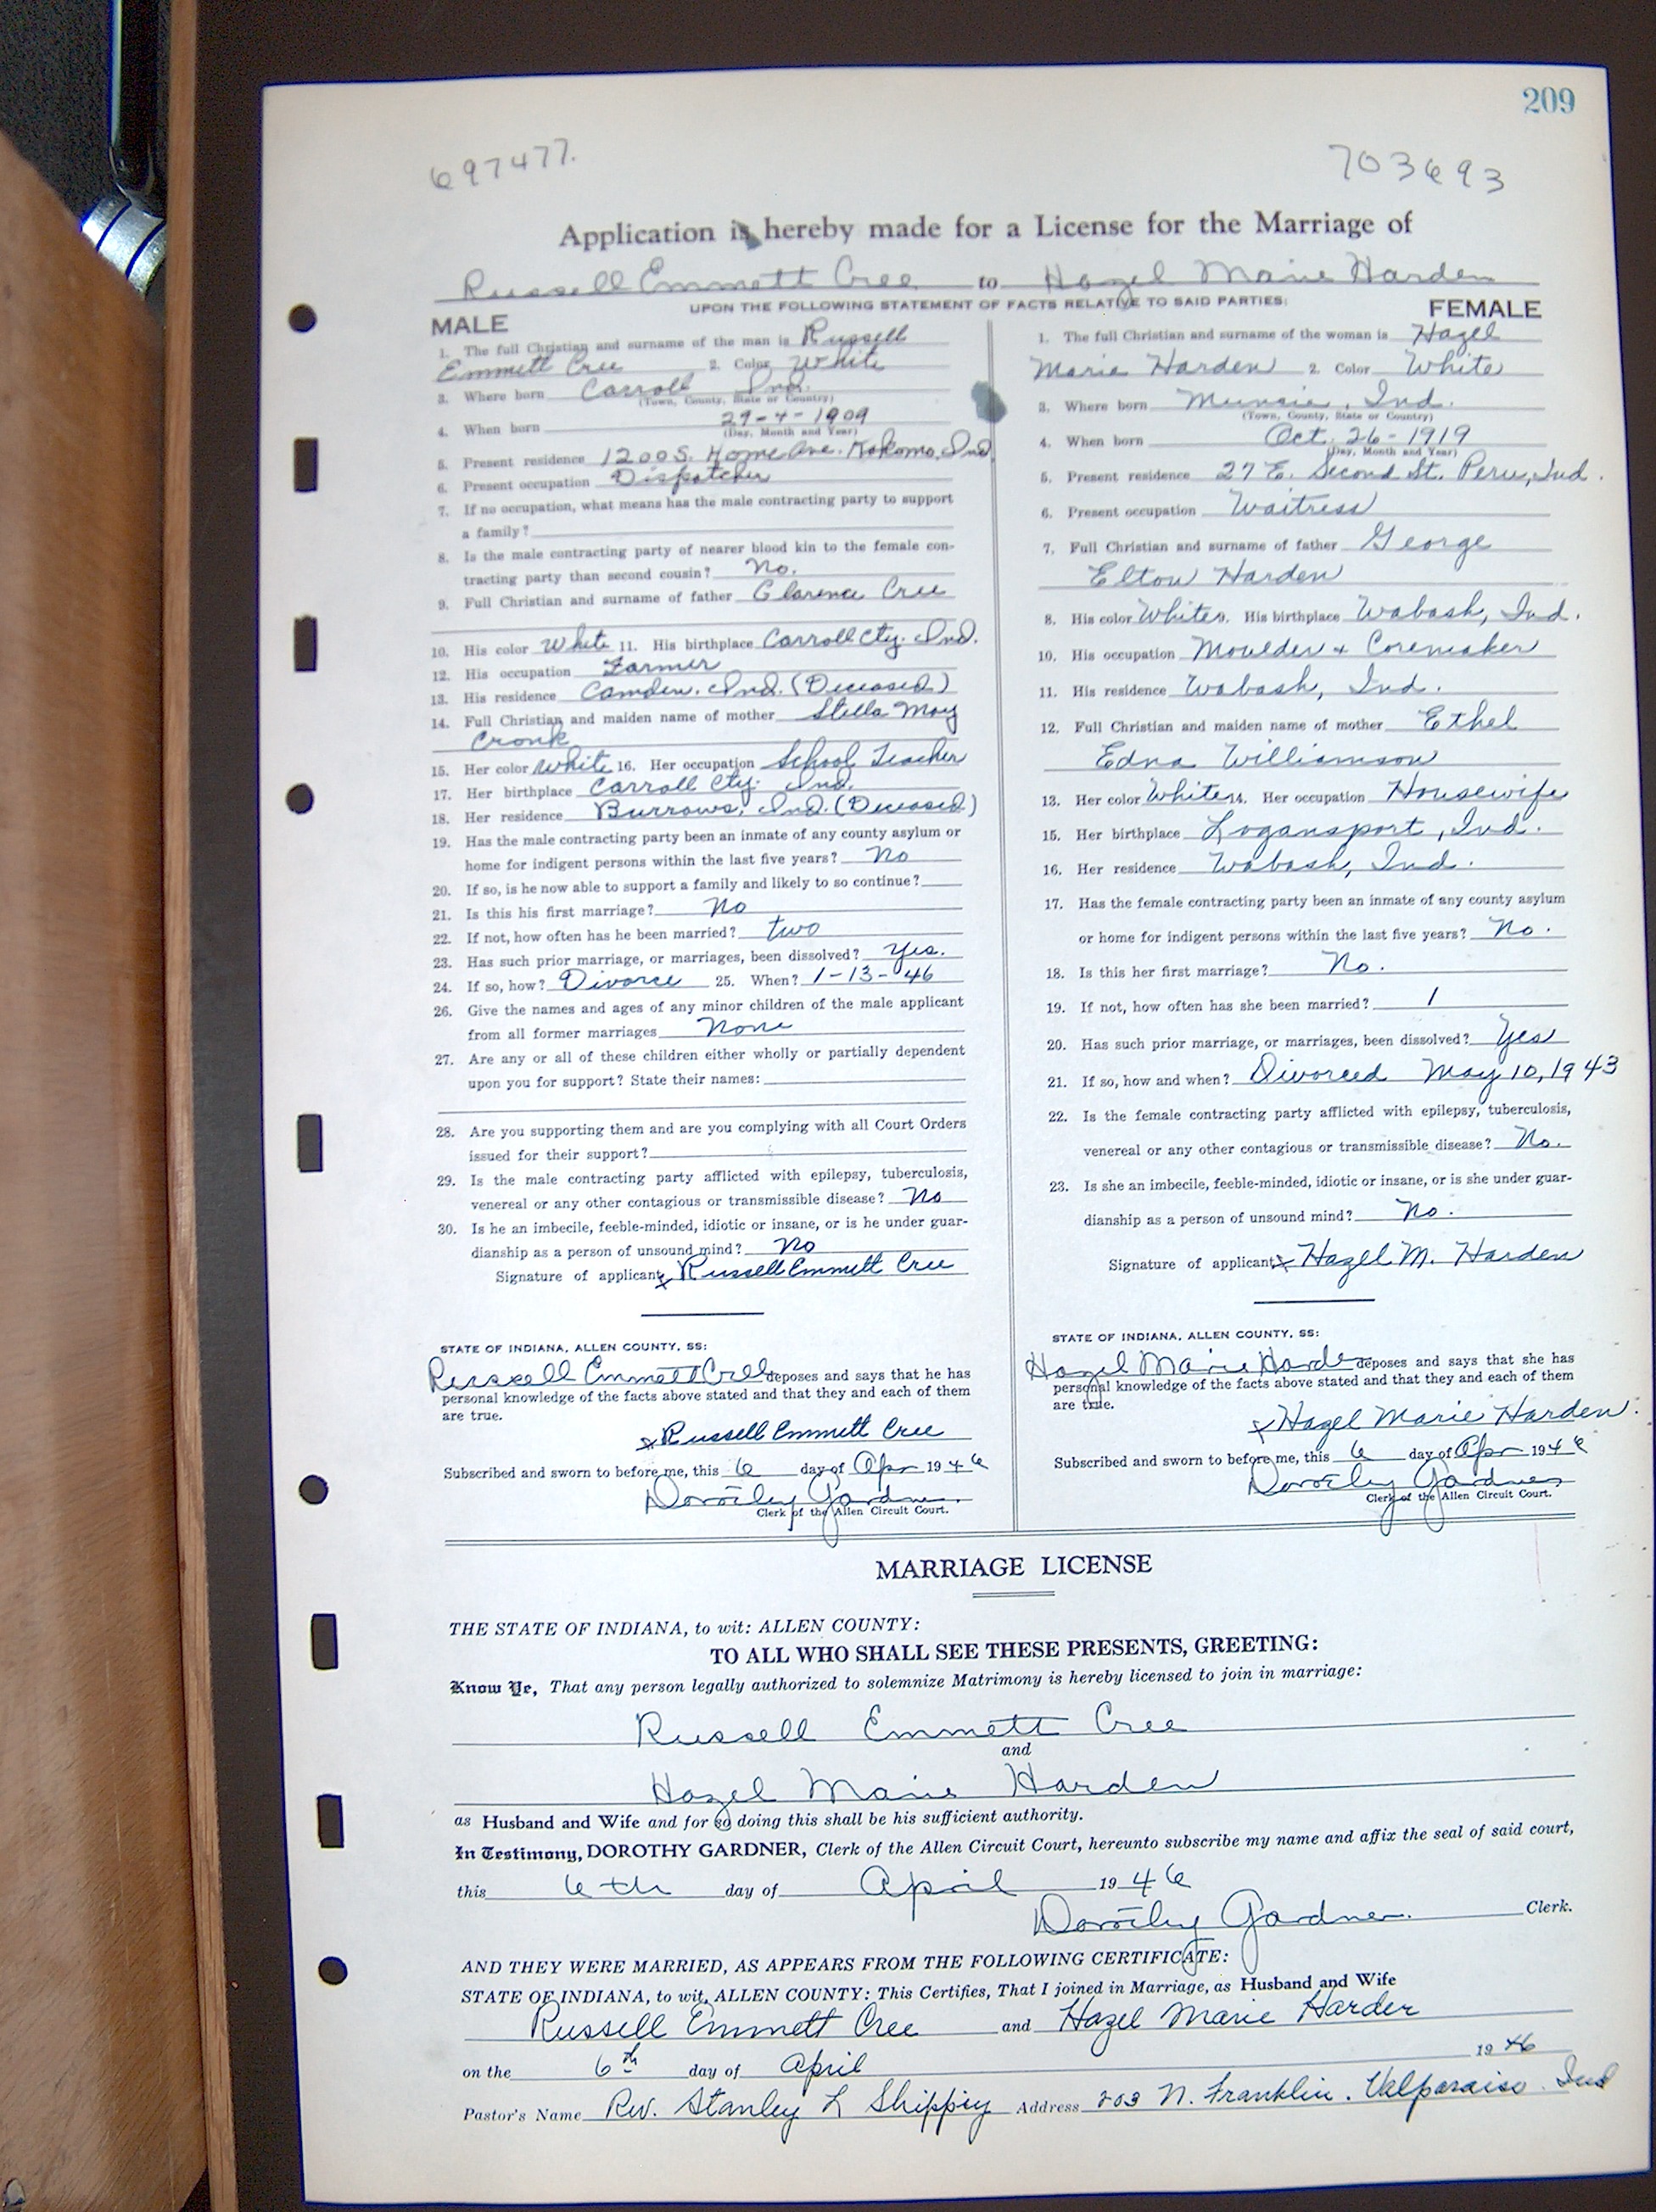 209
697477.
703693
Application is hereby made for a License for the Marriage of
Russell Emmett Cree to Hazel Marie Harden
UPON THE FOLLOWING STATEMENT OF FACTS RELATIVE TO SAID PARTIES:
MALE
1. The full Christian and surname of the man is Russell
Emmett Cree 2. Color White
3. Where born Carroll Ind.
(Town, County, State or Country)
4. When born 29-4-1909
(Day, Month and Year)
5. Present residence 1200 S. Home Ave. Kokomo, Ind.
6. Present occupation Dispatcher
7. If no occupation, what means has the male contracting party to support
a family?
8. Is the male contracting party of nearer blood kin to the female con-
tracting party than second cousin? No.
9. Full Christian and surname of father Clarence Cree
10. His color White 11. His birthplace Carroll Cty. Ind.
12. His occupation Farmer
13. His residence Camden. Ind. (Deceased)
14. Full Christian and maiden name of mother Stella May
Cronk
15. Her color White 16. Her occupation School Teacher
17. Her birthplace Carroll Cty. Ind.
18. Her residence Burrows, Ind. (Deceased)
19. Has the male contracting party been an inmate of any county asylum or
home for indigent persons within the last five years? No
20. If so, is he now able to support a family and likely to so continue?
21. Is this his first marriage? No
22. If not, how often has he been married? two
23. Has such prior marriage, or marriages, been dissolved? Yes.
24. If so, how? Divorce 25. When? 1-13-46
26. Give the names and ages of any minor children of the male applicant
from all former marriages None
27. Are any or all of these children either wholly or partially dependent
upon you for support? State their names:
28. Are you supporting them and are you complying with all Court Orders
issued for their support?
29. Is the male contracting party afflicted with epilepsy, tuberculosis,
venereal or any other contagious or transmissible disease? No
30. Is he an imbecile, feeble-minded, idiotic or insane, or is he under guar-
dianship as a person of unsound mind? No
Signature of applicant x Russell Emmett Cree
STATE OF INDIANA, ALLEN COUNTY, SS:
Russell Emmett Cree deposes and says that he has
personal knowledge of the facts above stated and that they and each of them
are true.
x Russell Emmett Cree
Subscribed and sworn to before me, this 6 day of Apr 1946
Dorothy Gardner
Clerk of the Allen Circuit Court.
FEMALE
1. The full Christian and surname of the woman is Hazel
Marie Harden 2. Color White
3. Where born Muncie, Ind.
(Town, County, State or Country)
4. When born Oct. 26-1919
(Day, Month and Year)
5. Present residence 27 E. Second St. Peru, Ind.
6. Present occupation Waitress
7. Full Christian and surname of father George
Elton Harden
8. His color White 9. His birthplace Wabash, Ind.
10. His occupation Moulder + Coremaker
11. His residence Wabash, Ind.
12. Full Christian and maiden name of mother Ethel
Edna Williamson
13. Her color White 14. Her occupation Housewife
15. Her birthplace Logansport, Ind.
16. Her residence Wabash, Ind.
17. Has the female contracting party been an inmate of any county asylum
or home for indigent persons within the last five years? No.
18. Is this her first marriage? No.
19. If not, how often has she been married? 1
20. Has such prior marriage, or marriages, been dissolved? Yes
21. If so, how and when? Divorced May 10, 1943
22. Is the female contracting party afflicted with epilepsy, tuberculosis,
venereal or any other contagious or transmissible disease? No.
23. Is she an imbecile, feeble-minded, idiotic or insane, or is she under guar-
dianship as a person of unsound mind? No.
Signature of applicant x Hazel M. Harden
STATE OF INDIANA, ALLEN COUNTY, SS:
Hazel Marie Harden deposes and says that she has
personal knowledge of the facts above stated and that they and each of them
are true.
x Hazel Marie Harden.
Subscribed and sworn to before me, this 6 day of Apr 1946
Dorothy Gardner
Clerk of the Allen Circuit Court.
MARRIAGE LICENSE
THE STATE OF INDIANA, to wit: ALLEN COUNTY:
TO ALL WHO SHALL SEE THESE PRESENTS, GREETING:
Know Ye, That any person legally authorized to solemnize Matrimony is hereby licensed to join in marriage:
Russell Emmett Cree
and
Hazel Marie Harden
as Husband and Wife and for so doing this shall be his sufficient authority.
In Testimony, DOROTHY GARDNER, Clerk of the Allen Circuit Court, hereunto subscribe my name and affix the seal of said court,
this 6th day of April 1946
Dorothy Gardner Clerk.
AND THEY WERE MARRIED, AS APPEARS FROM THE FOLLOWING CERTIFICATE:
STATE OF INDIANA, to wit, ALLEN COUNTY: This Certifies, That I joined in Marriage, as Husband and Wife
Russell Emmett Cree and Hazel Marie Harder
on the 6th day of April 1946
Pastor's Name Rev. Stanley L Shippey Address 203 N. Franklin. Valparaiso Ind